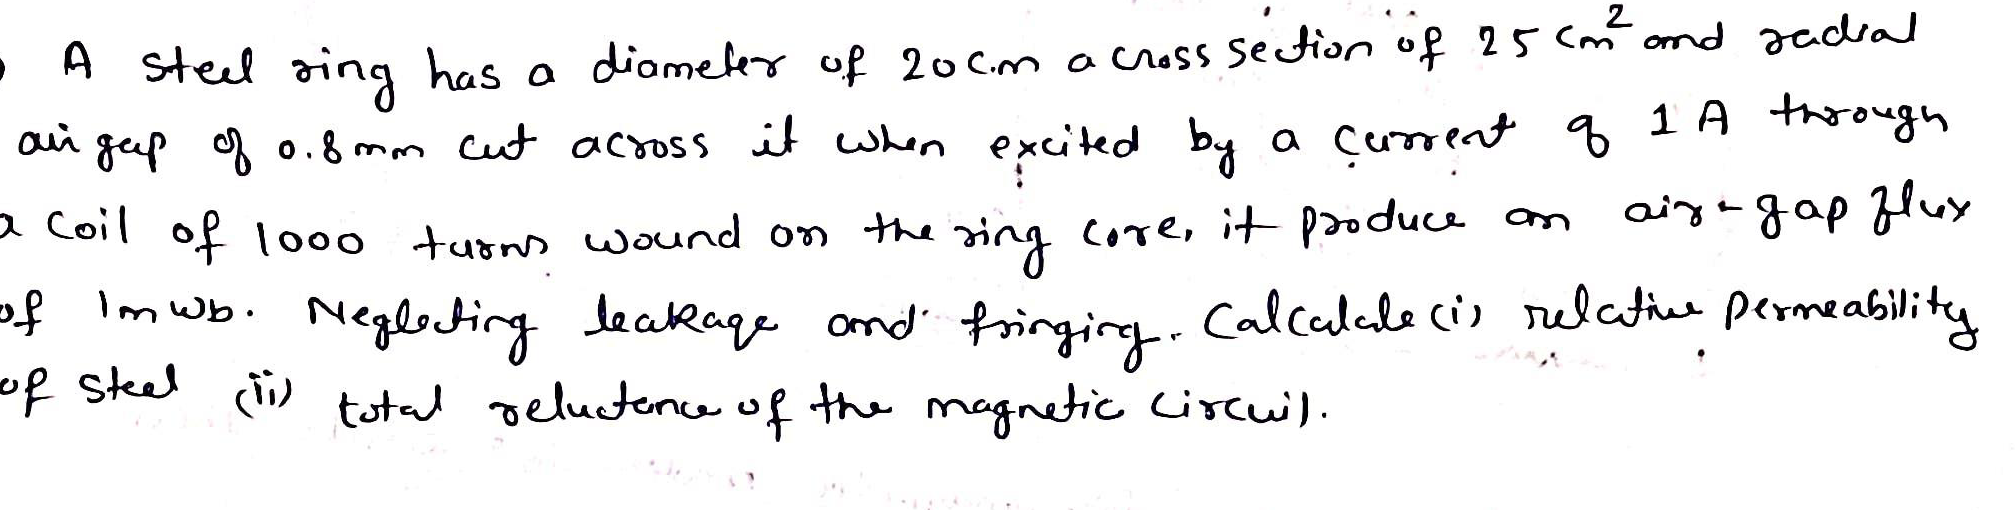 A steel ring has a diameter of 20 c.m a cross section of 25 cm² and radial
air gap of 0.8 mm cut across it when excited by a current of 1 A through
a coil of 1000 turns wound on the ring core, it produce an air-gap flux
of 1m wb. Neglecting leakage and fringing. Calculate (i) relative permeability
of steel (ii) total reluctance of the magnetic circuit.